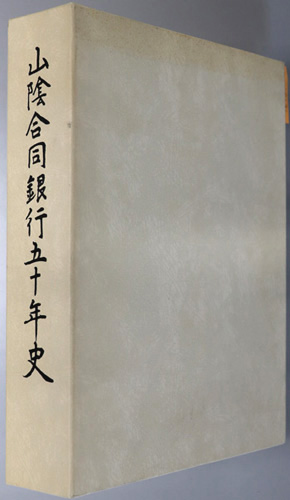 山陰合同銀行五十年史